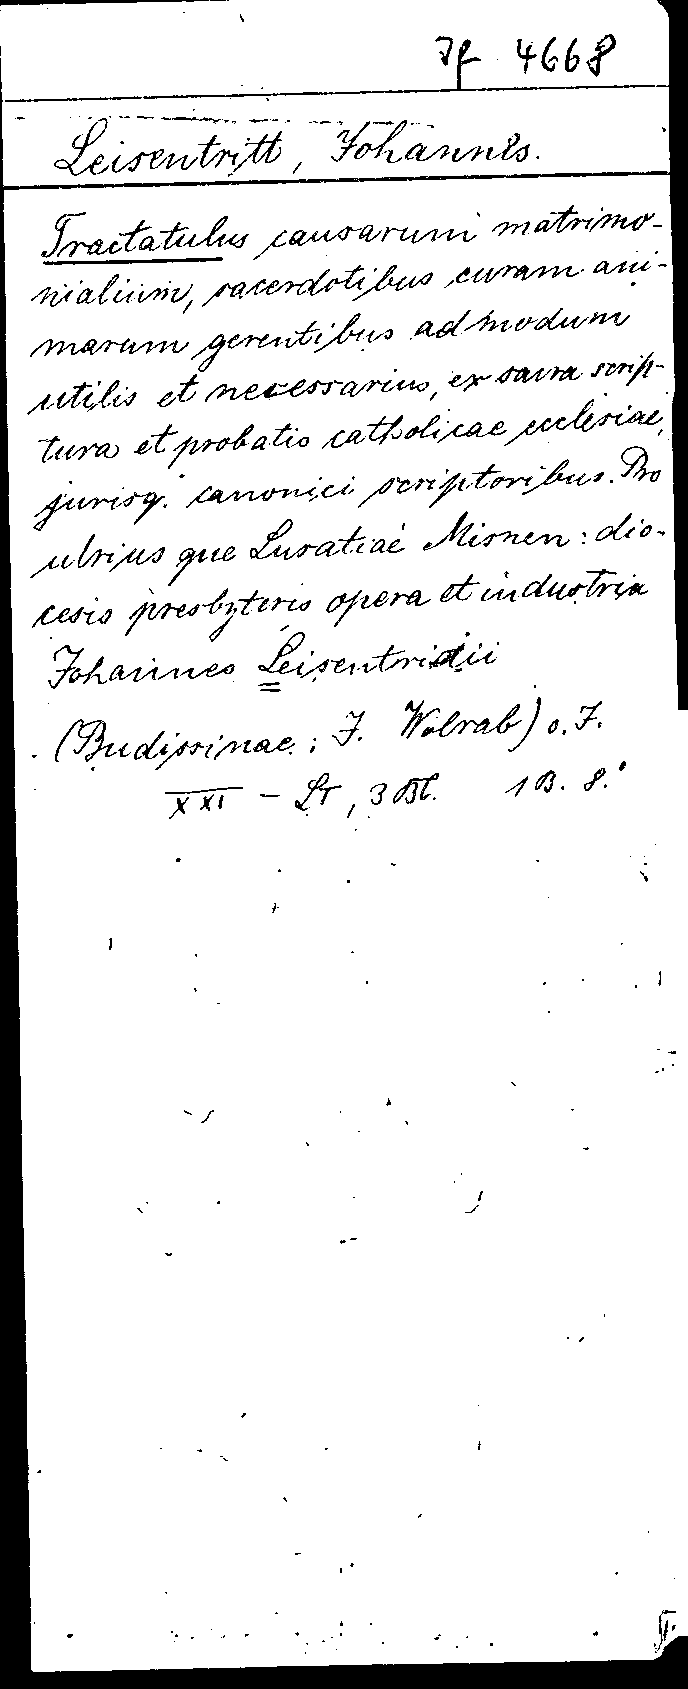 Jf 4668
Leisentritt, Johannes.
Tractatulus causarum matrimo-
nialium, sacerdotibus curam ani-
marum gerentibus admodum
utilis et necessarius, ex sacra scrip-
tura et probatis catholicae ecclesiae,
jurisq. canonici scriptoribus. Pro
utrius que Lusatiae Misnen: dio-
cesis presbyteris opera et industria
Johannes Leisentridii
(Budissinae: J. Wolrab) o. J.
XXI - LT, 3 Bl. 1 B. 8.°